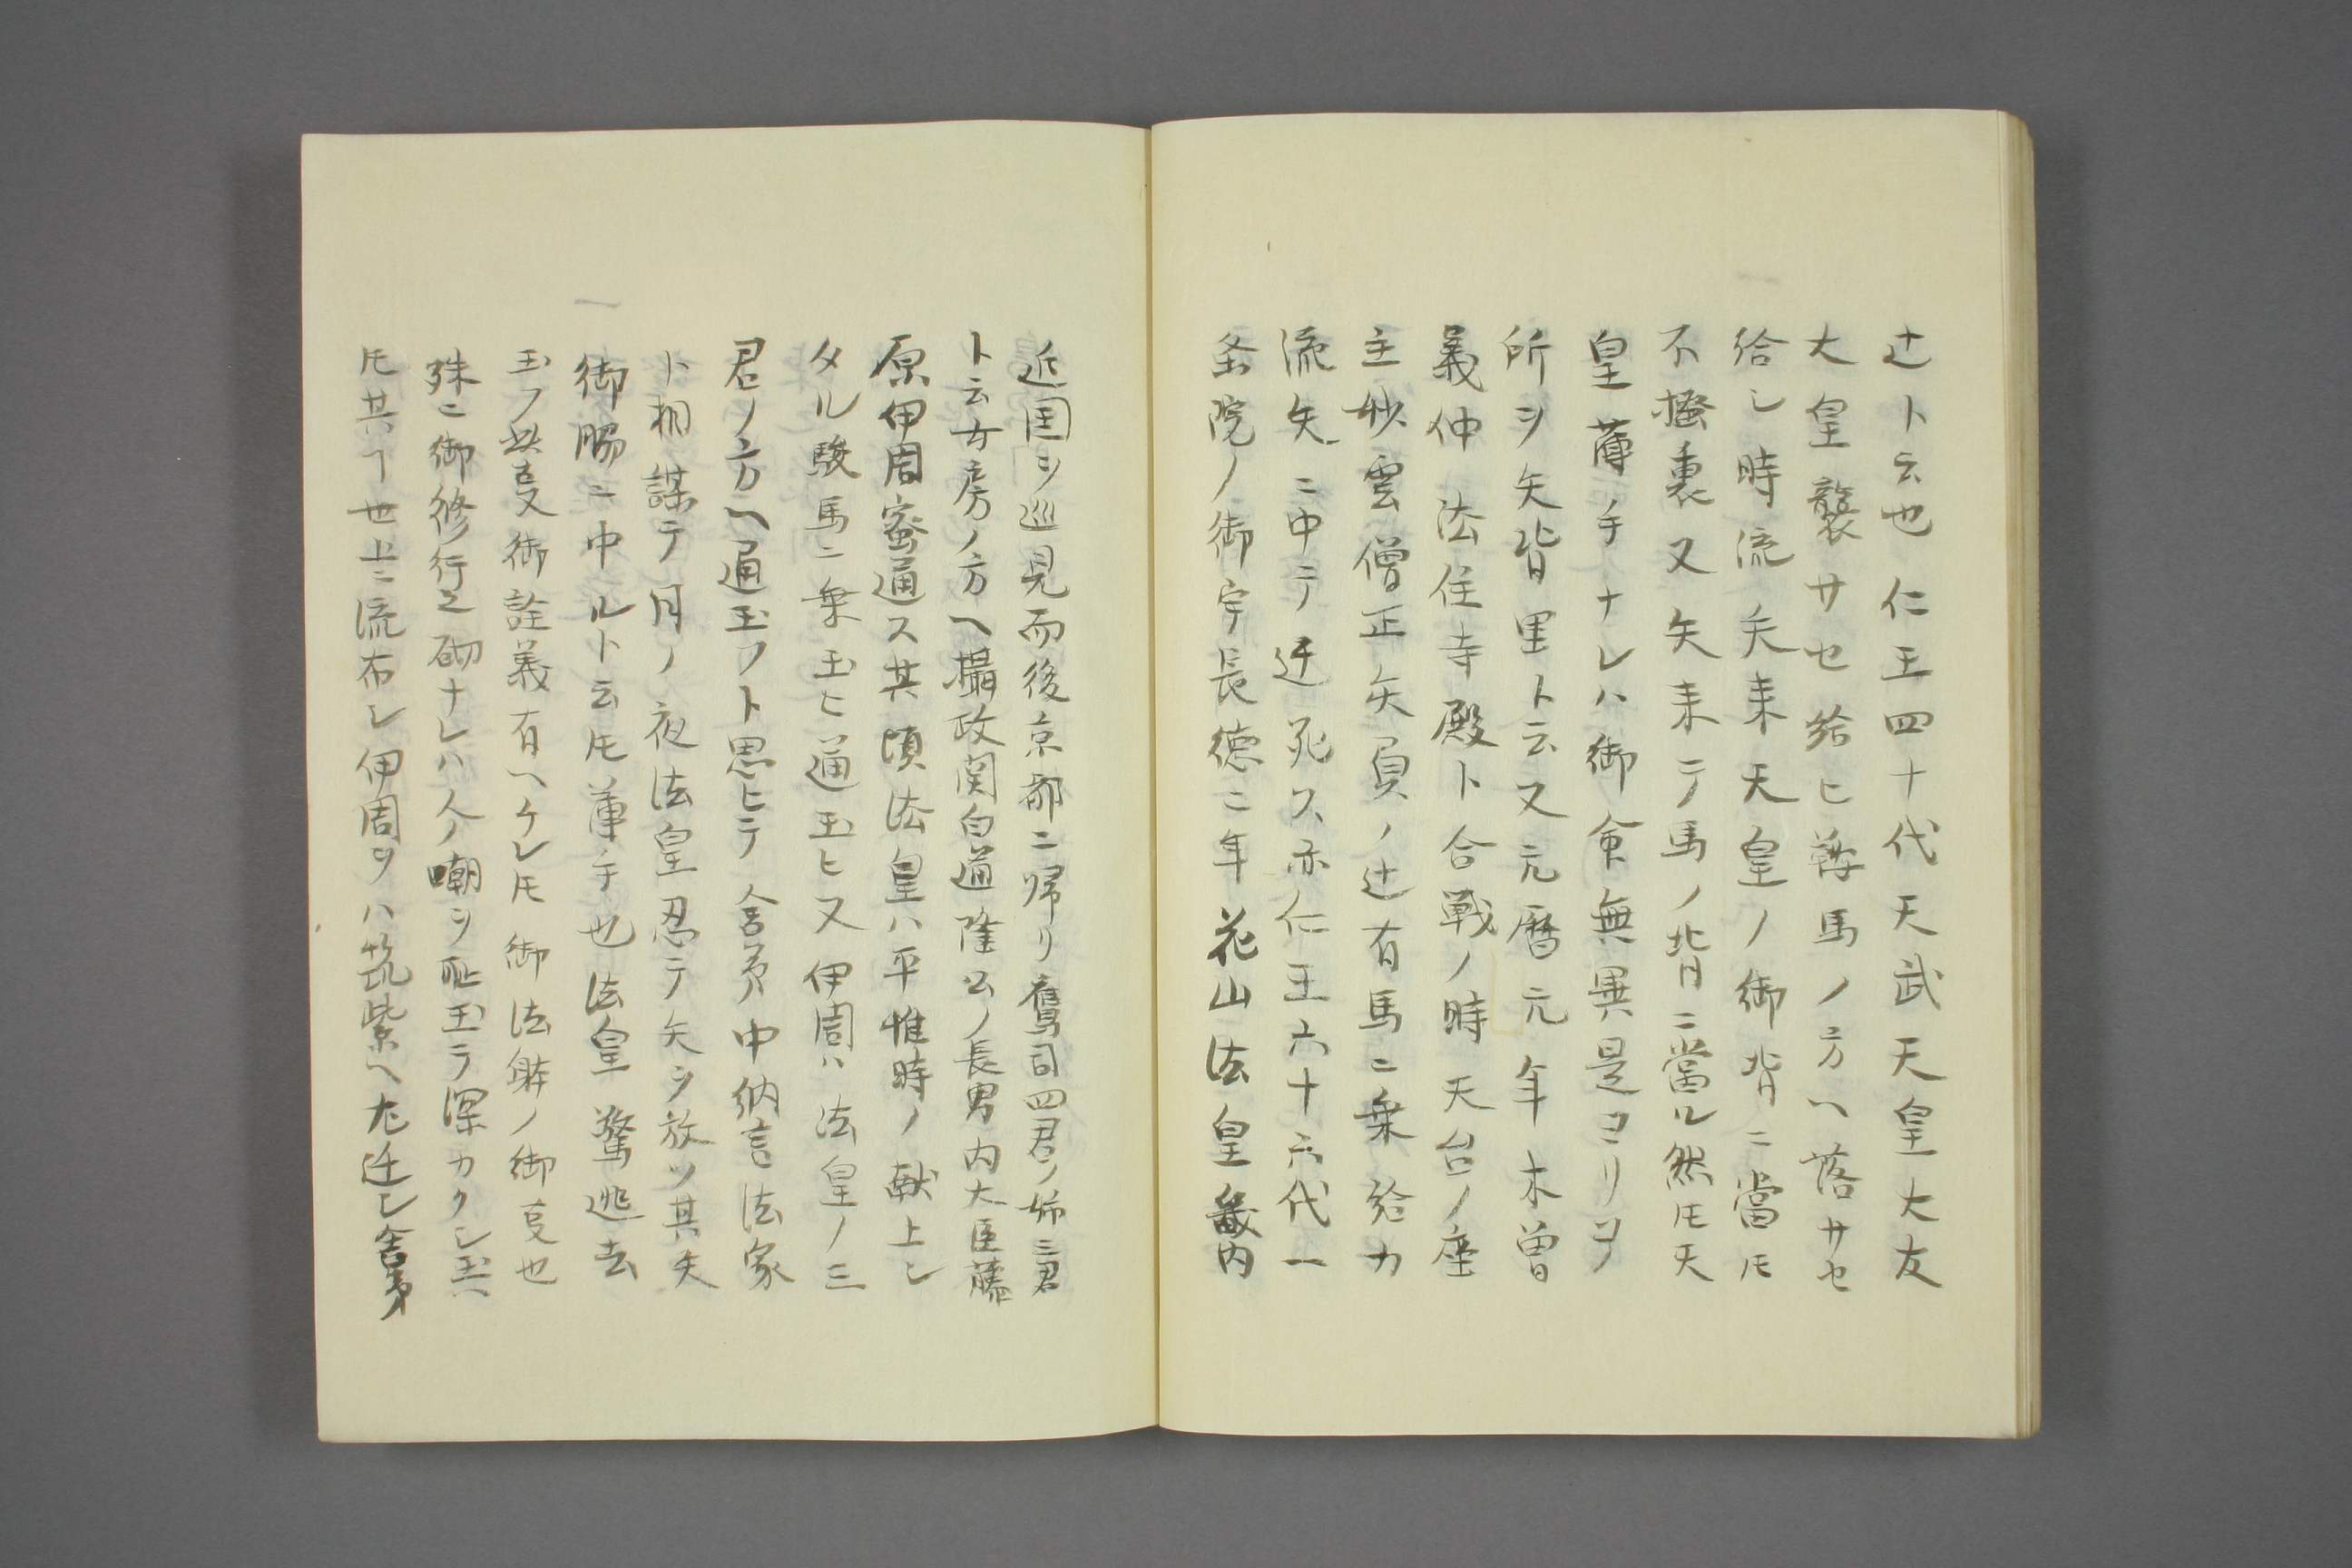 辻ト云也仁王四十代天武天皇大友
大皇襲サセ給ヒ鞍馬ノ方ヘ落サセ
給シ時流矢来天皇ノ御背ニ當㕝
不搔裏又矢来テ馬ノ背ニ當ル然㕝天
皇薄手ナレハ御命無異是ヨリソノ
所ヲ矢背里ト云又元暦元年木曽
義仲法住寺殿ト合戦ノ時天台ノ座
主妙雲僧正矢負ノ辻有馬ニ乗給カ
流矢ニ中テ迁死ス亦仁王六十六代一
条院ノ御宇長徳二年花山法皇畿内
近国ヲ巡見而後京都ニ帰リ鷹司四君ノ姉三君
ト云女房ノ方ヘ攝政関白道隆公ノ長男内大臣藤
原伊周蜜通ス其頃法皇ハ平惟時ノ献上シ
タル駿馬ニ乗玉ヒ通玉ヒ又伊周ハ法皇ノ三
君ノ方ヘ通玉フト思ヒテ舎弟中納言法家
ト相謀テ月ノ夜法皇忍テ矢ヲ放ツ其矢
御脇ニ中ルト云㕝薄手也法皇驚逃去
玉フ此㕝御詮義有ヘケレ㕝御法躰ノ御㕝也
殊ニ御修行之砌ナレハ人ノ嘲ヲ恥玉ラ深カクシ玉ヘ
㕝其ヿ世上ニ流布シ伊周ヲハ筑紫ヘ左迁シ舎弟